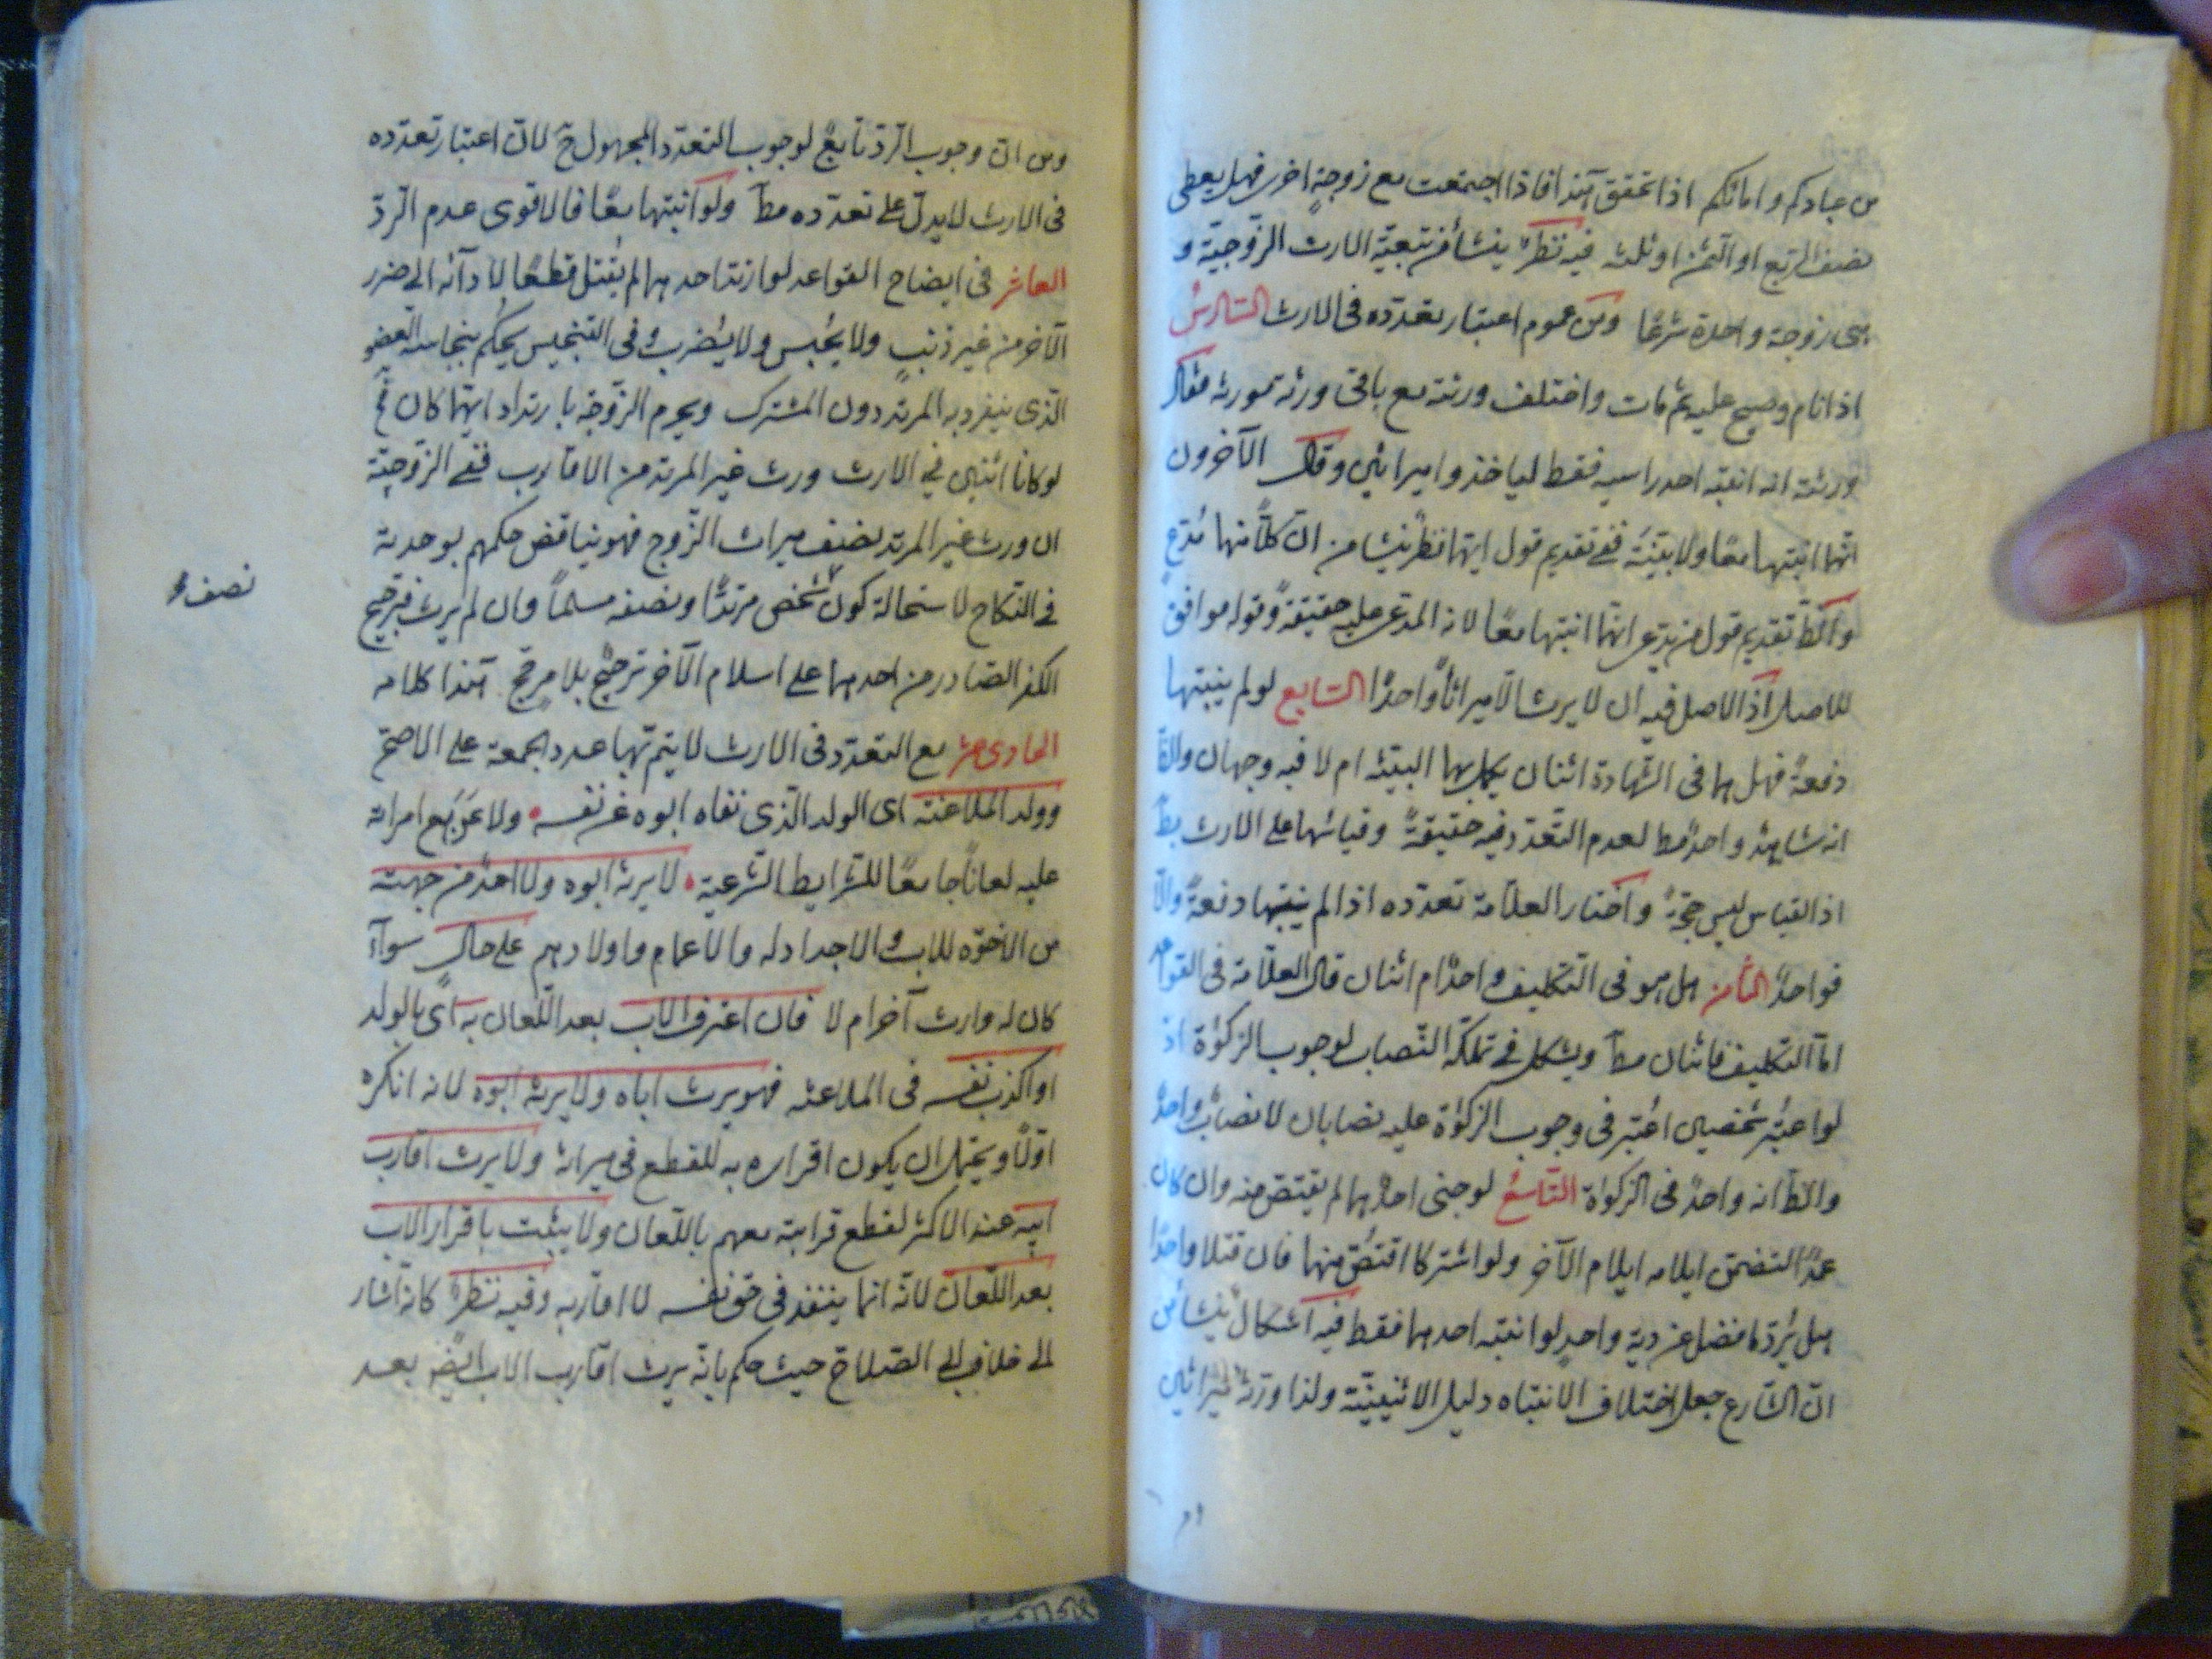 من عبادكم وامائكم اذا تحقق هذا فاذا اجتمعت مع زوجة اخرى فهل يعطى
نصف الربع او الثمن او ثلثه فيه نظر ينشأ من تبعية الارث الزوجية و
هى زوجة واحدة شرعا ومن عموم اعتبار تعدده فى الارث السادس
اذا نام وصيح عليه ثم مات واختلف ورثته مع باقى ورثة مورثه فقال
ورثته انه انتبه احد راسيه فقط لياخذوا ميراثين وقال الآخرون
انهما انتبها معا ولا بينة ففى تقديم قول ايهما نظر ينشا من ان كلا منهما مدع
والظ تقديم قول من يدعى انهما انتبها معا لانه المدعى عليه حقيقة وقوله موافق
للاصل اذ الاصل فيه ان لا يرث الا ميراثا واحدا السابع لو لم ينتبها
دفعة فهل هما فى الشهادة اثنان يكمل بهما البينة ام لا فيه وجهان والظ
انه شاهد واحد مط لعدم التعدد فيه حقيقة وقياسها على الارث بط
اذ القياس ليس حجة واختار العلامة تعدده اذا لم ينتبها دفعة والا
فواحد الثامن هل هو فى التكليف واحد ام اثنان قال العلامة فى القواعد
اما التكليف فاثنان مط ويشكل فى تملكه النصاب لوجوب الزكوة اذ
لو اعتبر شخصين اعتبر فى وجوب الزكوة عليه نصابان لا نصاب واحد
والظ انه واحد فى الزكوة التاسع لو جنى احدهما لم يقتص منه وان كان
عمدا لتضمن ايلامه ايلام الآخر ولو اشتركا اقتص منهما فان قتلا واحدا
هل يرد ما فضل عن دية واحد لو انتبه احدهما فقط فيه اشكال ينشأ من
ان الشارع جعل اختلاف الانتباه دليل الاثنينية ولذا ورثه ميراثين
ومن ان وجوب الرد تابع لوجوب التعدد المجهول ح لان اعتبار تعدده
فى الارث لا يدل على تعدده مط ولو انتبها معا فالاقوى عدم الرد
العاشر فى ايضاح القواعد لو ارتد احدهما لم يقتل قطعا لادائه الى ضرر
الآخر من غير ذنب ولا يحبس ولا يضرب وفى التنجيس يحكم بنجاسة العضو
الذى ينفرد به المرتد دون المشترك ويحرم الزوجة بارتداد ايهما كان فح
لو كانا اثنين فى الارث ورث غير المرتد من الاقارب ففى الزوجية
ان ورث غير المرتد نصف ميراث الزوج فهو يناقض حكمهم بوحدته
فى النكاح لاستحالة كون شخص مرتدا ونصفه مسلما وان لم يرث فترجيح
نصف
الكفر الصادر من احدهما على اسلام الآخر ترجيح بلا مرجح هذا كلامه
الحادى عشر مع التعدد فى الارث لا يتم بهما عدد الجمعة على الاصح
وولد الملاعنة اى الولد الذى نفاه ابوه عن نفسه ولاعن مع امراته
عليه لعانا جامعا للشرايط الشرعية لا يرثه ابوه ولا احد من جهته
من الاخوة للاب والاجداد له والاعمام واولادهم على حال سواء
كان له وارث آخر ام لا فان اعترف الاب بعد اللعان به اى بالولد
او اكذب نفسه فى الملاعنة فهو يرث اباه ولا يرثه ابوه لانه انكره
اولا ويحتمل ان يكون اقراره به للطمع فى ميراثه ولا يرث اقارب
ابيه عند الاكثر لقطع قرابته معهم باللعان ولا يثبت باقرار الاب
بعد اللعان لانه انما ينفذ فى حق نفسه لا اقاربه وفيه نظر كانه اشار
الى خلاف ابى الصلاح حيث حكم بانه يرث اقارب الاب ايضه بعد